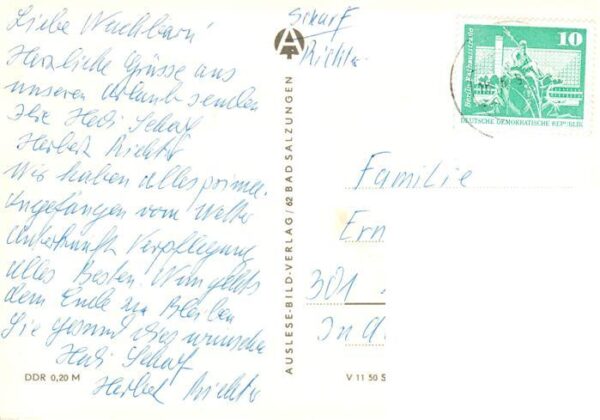 Liebe Nachbarn!
Herzliche Grüsse aus
unseren Urlaub senden
Ihr Hedi Scharf
Herbert Richter
Wir haben alles prima.
Angefangen vom Wetter
Unterkunft Verpflegung
alles Besten. Nun gehts
dem Ende zu Bleiben
Sie gesund dies wünschen
Hedi Scharf
Herbert Richter
DDR 0,20 M
AUSLESE-BILD-VERLAG / 62 BAD SALZUNGEN
V 11 50 S
Scharf
Richter
10
Berlin, Rathausstraße
DEUTSCHE DEMOKRATISCHE REPUBLIK
Familie
Ern
301
In d